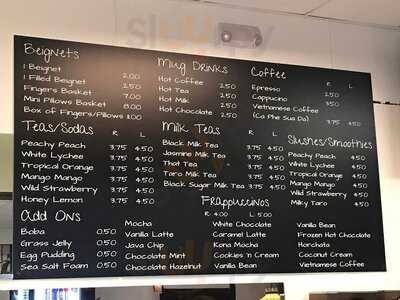 Beignets
1 Beignet 2.00
1 Filled Beignet 2.50
Fingers Basket 7.00
Mini Pillows Basket 8.00
Box of Fingers/Pillows 11.00
Mug Drinks
Hot Coffee 2.50
Hot Tea 2.50
Hot Milk 2.50
Hot Chocolate 2.50
Coffee R L
Espresso 2.50
Cappucino 3.50
Vietnamese Coffee
(Ca Phe Sua Da) 3.75 4.50
Teas/Sodas R L
Peachy Peach 3.75 4.50
White Lychee 3.75 4.50
Tropical Orange 3.75 4.50
Mango Mango 3.75 4.50
Wild Strawberry 3.75 4.50
Honey Lemon 3.75 4.50
Milk Teas R L
Black Milk Tea 3.75 4.50
Jasmine Milk Tea 3.75 4.50
Thai Tea 3.75 4.50
Taro Milk Tea 3.75 4.50
Black Sugar Milk Tea 3.75 4.50
Slushes/Smoothies
Peachy Peach 4.50
White Lychee 4.50
Tropical Orange 4.50
Mango Mango 4.50
Wild Strawberry 4.50
Milky Taro 4.50
Add Ons
Boba 0.50
Grass Jelly 0.50
Egg Pudding 0.50
Sea Salt Foam 0.50
Frappuccinos
R: 4.00 L: 5.00
Mocha
Vanilla Latte
Java Chip
Chocolate Mint
Chocolate Hazelnut
White Chocolate
Caramel Latte
Kona Mocha
Cookies 'n Cream
Vanilla Bean
Vanilla Bean
Frozen Hot Chocolate
Horchata
Coconut Cream
Vietnamese Coffee